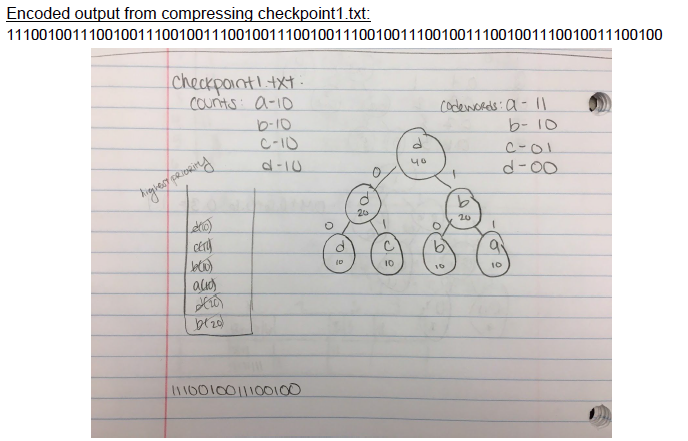 Encoded output from compressing checkpoint1.txt:
11100100111001001110010011100100111001001110010011100100111001001110010011100100
checkpoint1.txt.
counts: a-10
b-10
c-10
d-10
codewords: a - 11
b- 10
c-01
d-00
highest priority
d(10)
c(10)
b(10)
a(10)
d(20)
b(20)
d
40
0 1
d
20
b
20
0 1 0 1
d c b a
10 10 10 10
1110010011100100